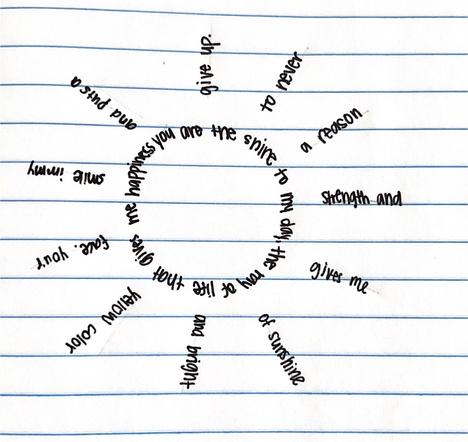 you are the shine to my day, the ray of life that gives me happiness
and puts a
smile in my
face. your
yellow color
and bright
of sunshine
gives me
strength and
a reason
to never
give up.